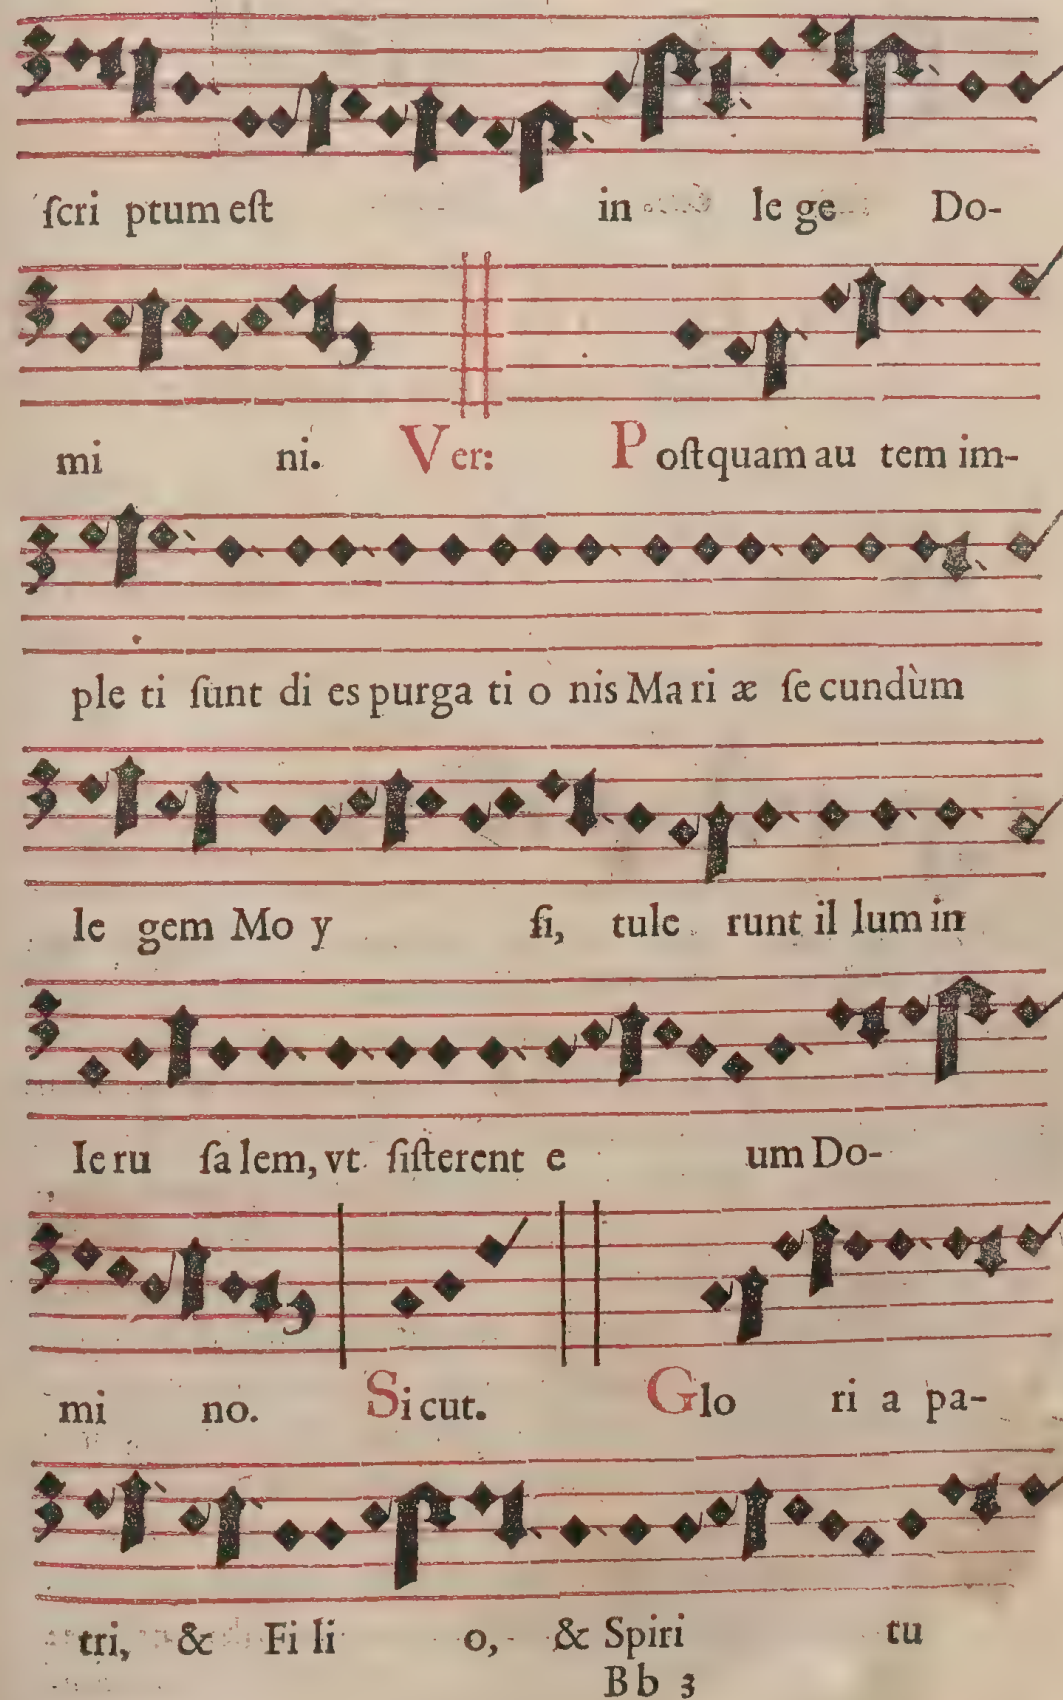 ſcri ptum eſt in le ge Do-
mi ni. Ver: Poſtquam au tem im-
ple ti ſunt di es purga ti o nis Ma ri æ ſe cundùm
le gem Mo y ſi, tule runt il lum in
Ieru ſa lem, vt ſiſterent e um Do-
mi no. Si cut. Glo ri a pa-
tri, & Fi li o, & Spiri tu
Bb 3